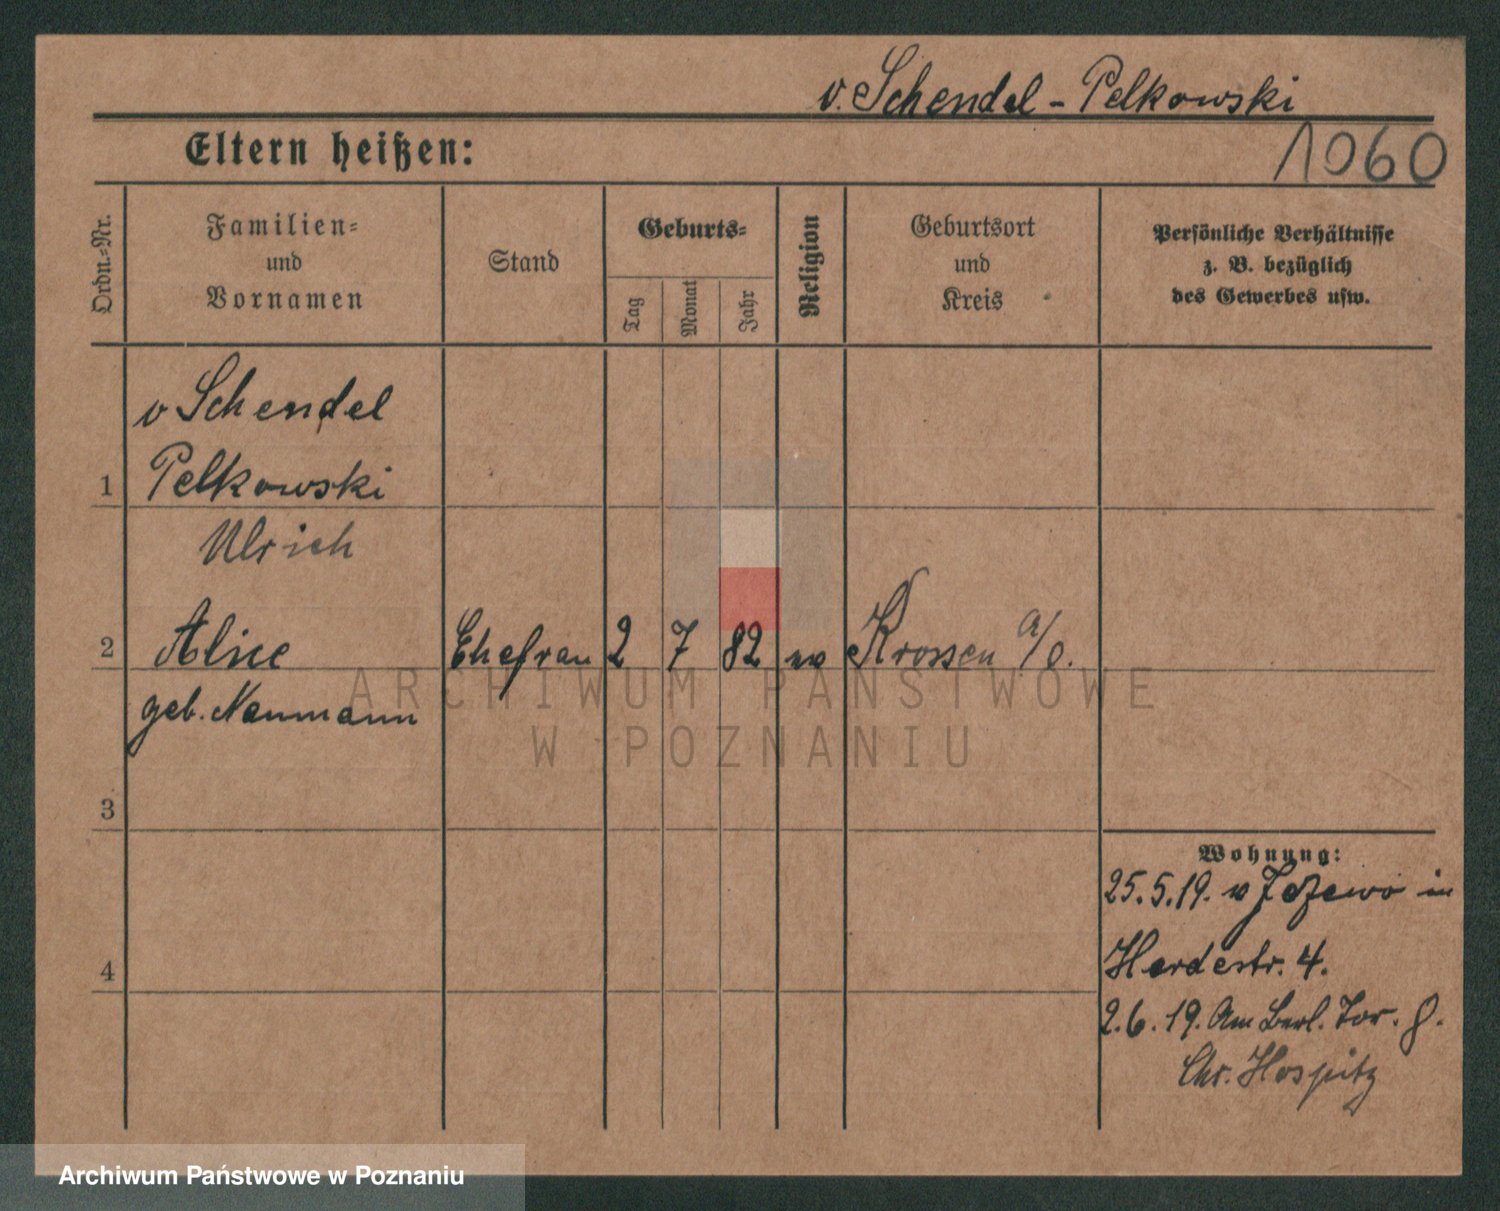 v. Schendel - Pelkowski
1060
Eltern heißen:
Ordn.-Nr.
Familien-
und
Vornamen
Stand
Geburts-
Tag
Monat
Jahr
Religion
Geburtsort
und
Kreis
Persönliche Verhältnisse
z. B. bezüglich
des Gewerbes usw.
v Schendel
1 Pelkowski
Ulrich
2 Alice Ehefrau 2 7 82 Krossen a/O.
geb. Naumann
ARCHIWUM PAŃSTWOWE
W POZNANIU
3
Wohnung:
25.5.19. v Jezewo in
Hardestr. 4.
4
2.6.19. Am Berl. Tor. 8.
Chr. Hospitz
Archiwum Państwowe w Poznaniu